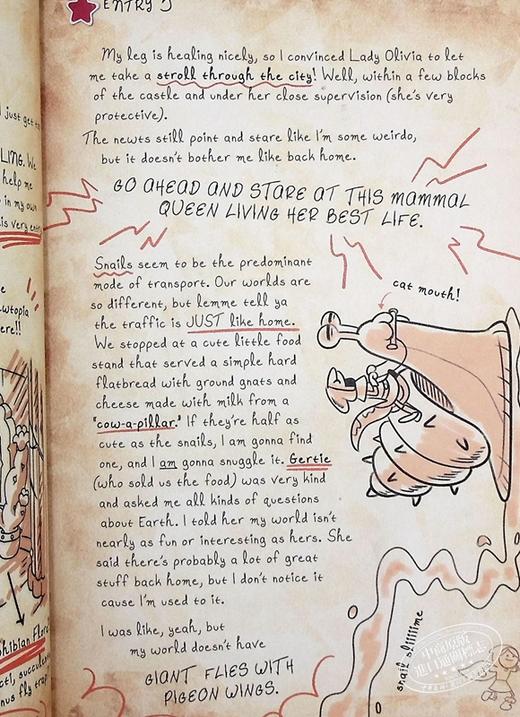 ENTRY 5
My leg is healing nicely, so I convinced Lady Olivia to let
me take a stroll through the city! Well, within a few blocks
of the castle and under her close supervision (she's very
protective).
The newts still point and stare like I'm some weirdo,
but it doesn't bother me like back home.
GO AHEAD AND STARE AT THIS MAMMAL
QUEEN LIVING HER BEST LIFE.
Snails seem to be the predominant
mode of transport. Our worlds are
so different, but lemme tell ya
the traffic is JUST like home.
We stopped at a cute little food
stand that served a simple hard
flatbread with ground gnats and
cheese made with milk from a
"cow-a-pillar." If they're half as
cute as the snails, I am gonna find
one, and I am gonna snuggle it. Gertie
(who sold us the food) was very kind
and asked me all kinds of questions
about Earth. I told her my world isn't
nearly as fun or interesting as hers. She
said there's probably a lot of great
stuff back home, but I don't notice it
cause I'm used to it.
I was like, yeah, but
my world doesn't have
GIANT FLIES WITH
PIGEON WINGS.
cat mouth!
snail sliiiiime
I just get
LING. We
help me
in my own
is very
ere!!